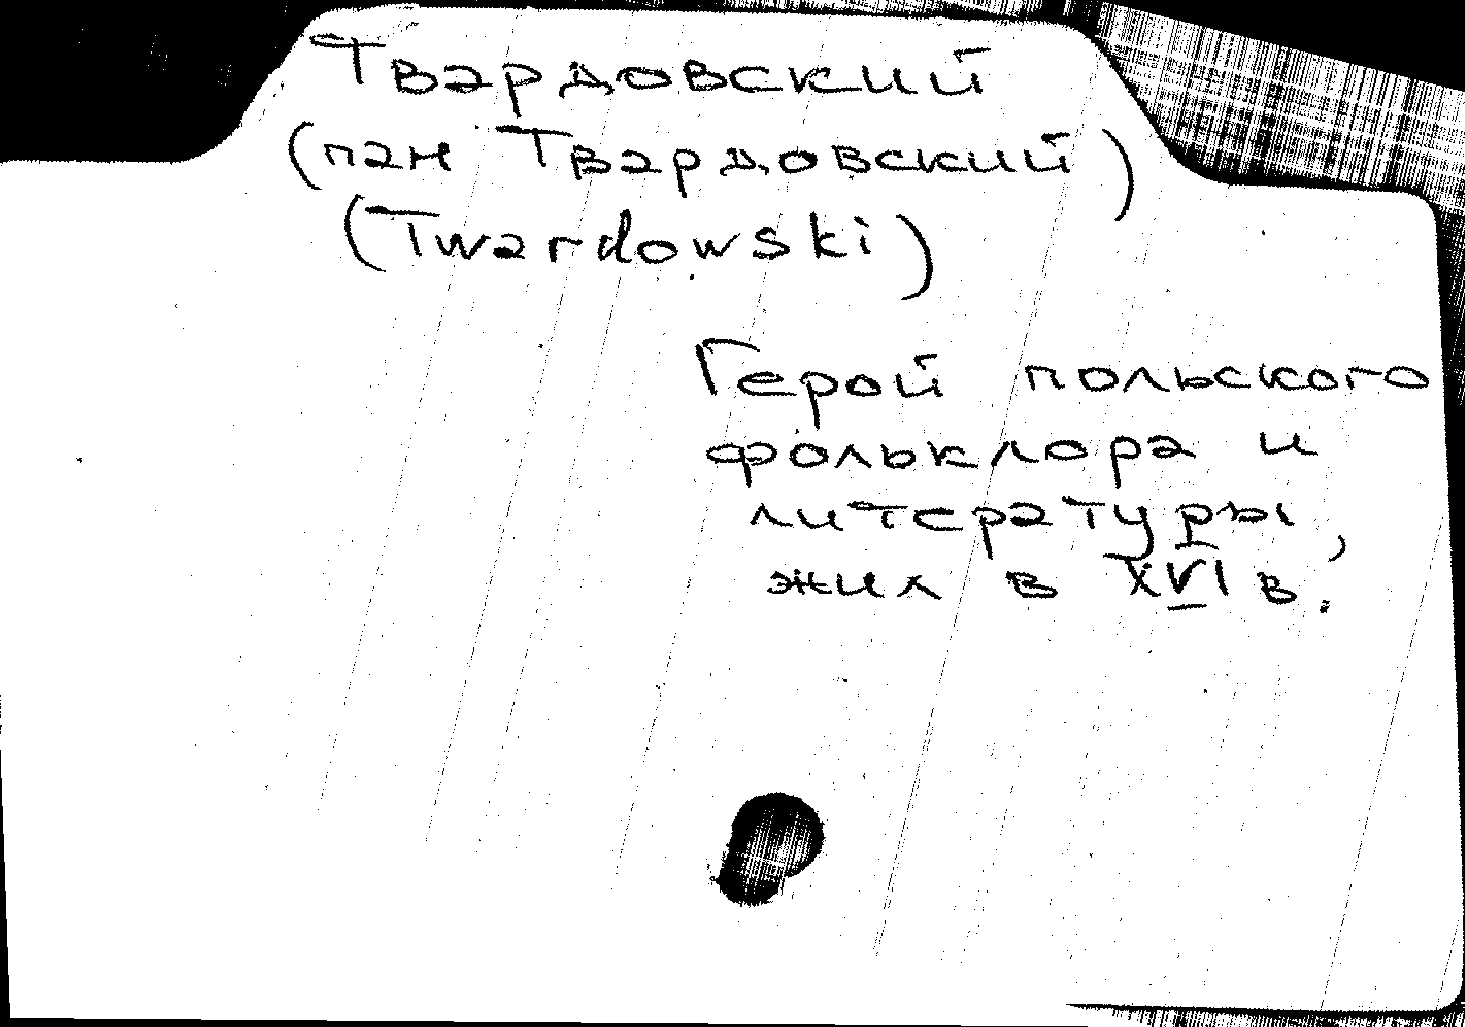 Твардовский
(пан Твардовский)
(Twardowski)
Герой польского
фольклора и
литературы,
жил в XVI в.